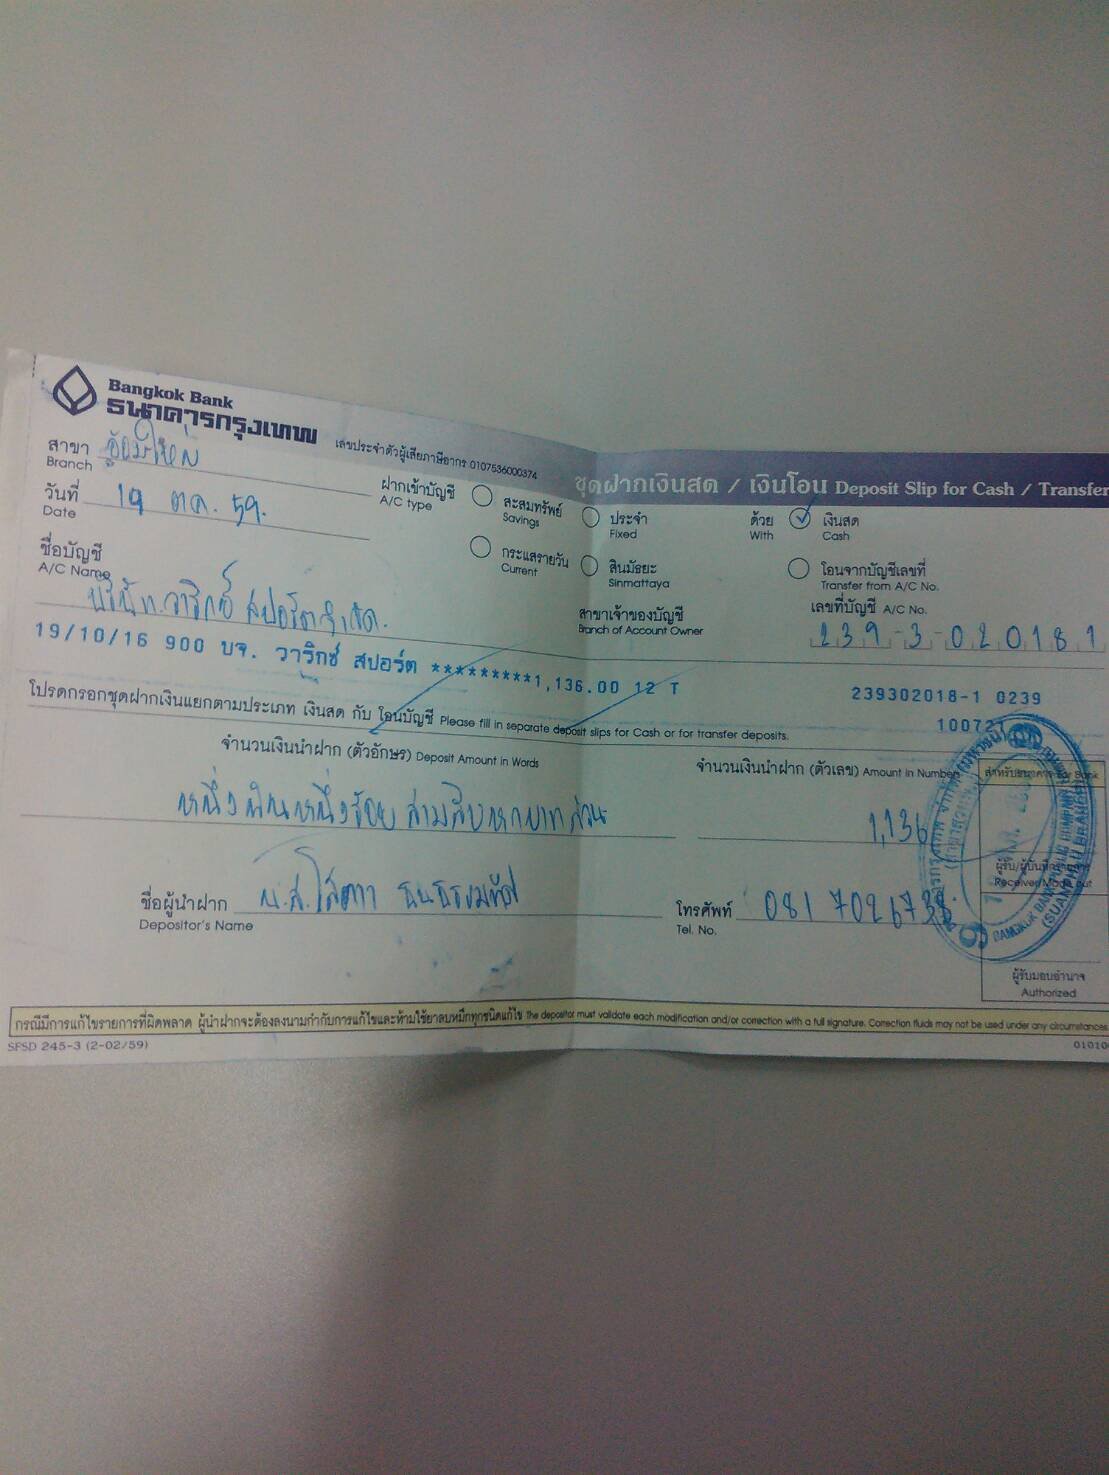 Bangkok Bank
ธนาคารกรุงเทพ
เลขประจำตัวผู้เสียภาษีอากร 0107536000374
ชุดฝากเงินสด / เงินโอน Deposit Slip for Cash / Transfer
สาขา อ้อมใหญ่
Branch
วันที่ 19 ตค. 59.
Date
ฝากเข้าบัญชี
A/C type
สะสมทรัพย์
Savings
ประจำ
Fixed
ด้วย
With
เงินสด
Cash
กระแสรายวัน
Current
สินมัธยะ
Sinmattaya
โอนจากบัญชีเลขที่
Transfer from A/C No.
ชื่อบัญชี
A/C Name
บริษัท วาริกซ์ สปอร์ต จำกัด.
สาขาเจ้าของบัญชี
Branch of Account Owner
เลขที่บัญชี A/C No.
239-3-020181
19/10/16 900 บจ. วาริกซ์ สปอร์ต *********1,136.00 12 T
239302018-1 0239
100721
โปรดกรอกชุดฝากเงินแยกตามประเภท เงินสด กับ โอนบัญชี Please fill in separate deposit slips for Cash or for transfer deposits.
จำนวนเงินนำฝาก (ตัวอักษร) Deposit Amount in Words
จำนวนเงินนำฝาก (ตัวเลข) Amount in Number
สำหรับธนาคาร For Bank
หนึ่งพันหนึ่งร้อยสามสิบหกบาทถ้วน
1,136
ผู้รับ/ผู้บันทึกรายการ
Receiver/Made out
ชื่อผู้นำฝาก น.ส.โสภา
Depositor's Name
โทรศัพท์ 081 7026738
Tel. No.
ผู้รับมอบอำนาจ
Authorized
กรณีมีการแก้ไขรายการที่ผิดพลาด ผู้นำฝากจะต้องลงนามกำกับการแก้ไขและห้ามใช้ยาลบหมึกทุกชนิดแก้ไข The depositor must validate each modification and/or correction with a full signature. Correction fluids may not be used under any circumstances
SFSD 245-3 (2-02/59)